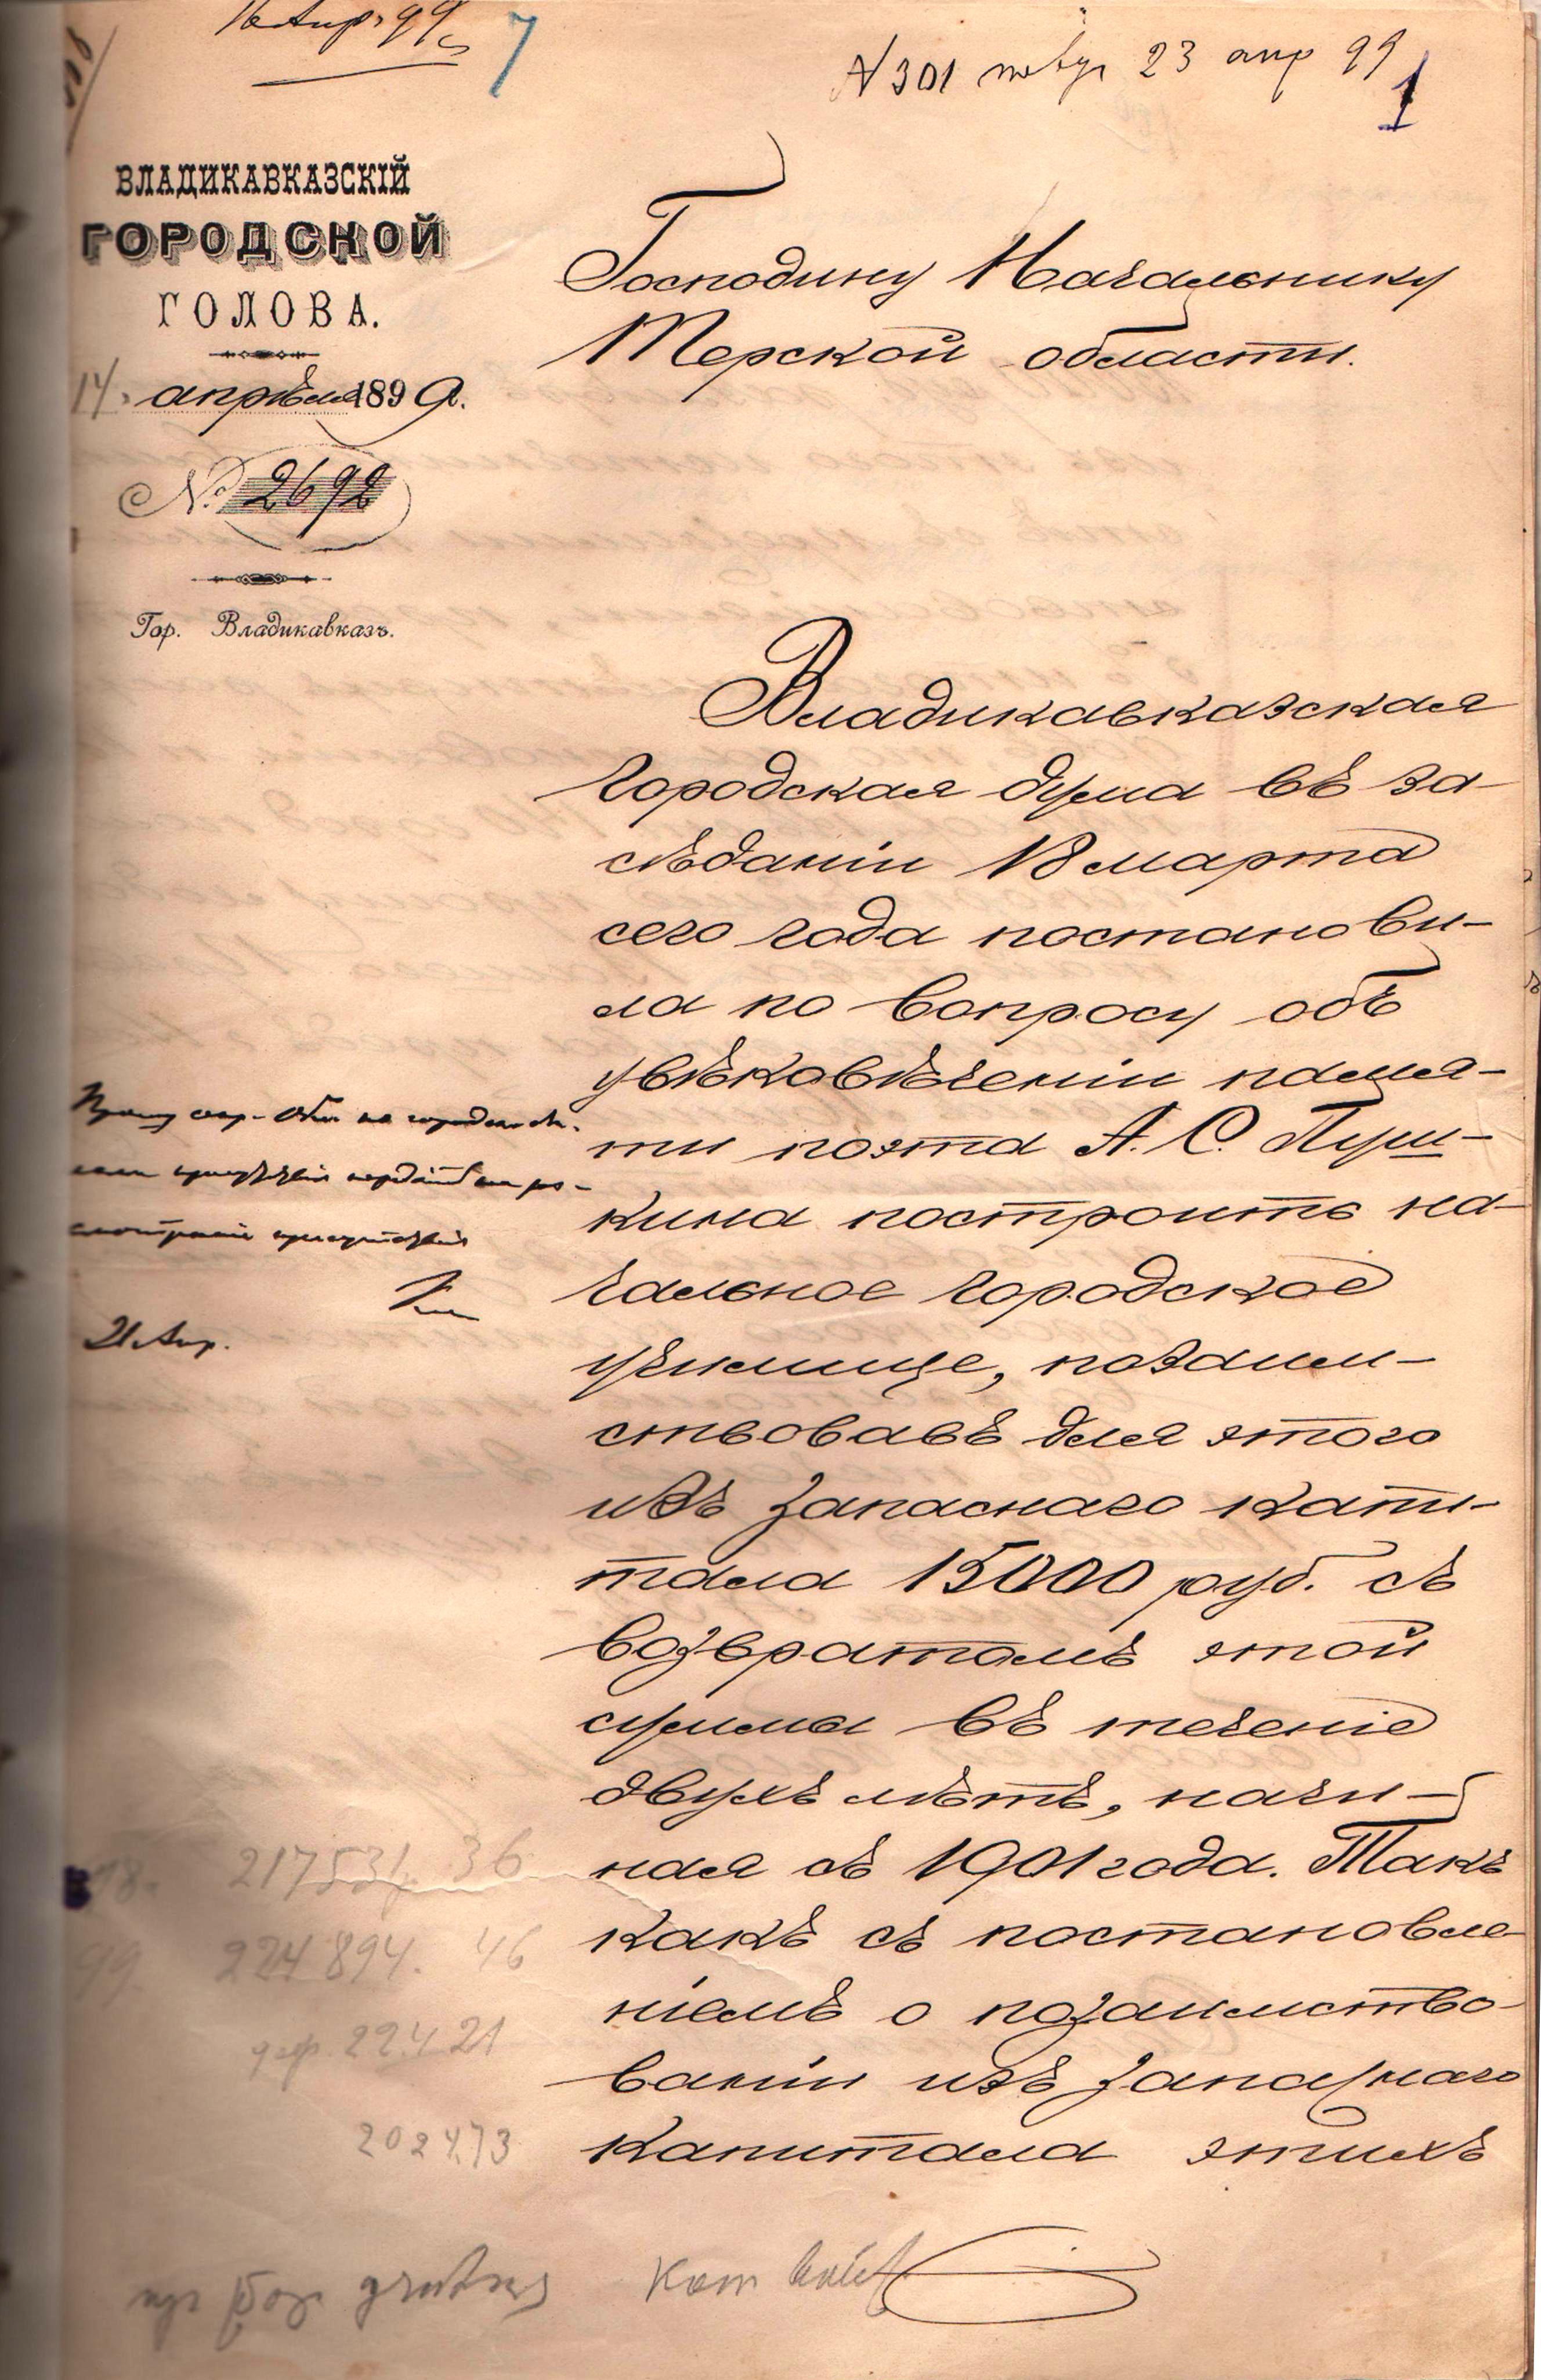 16 Апр. 99
7
N 301 23 апр 99
1
ВЛАДИКАВКАЗСКІЙ
ГОРОДСКОЙ
ГОЛОВА.
14 апрѣля 1899 г.
№ 2692
Гор. Владикавказъ.
Господину Начальнику
Терской области.
Владикавказская
городская дума въ за-
сѣданіи 18 марта
сего года постанови-
ла по вопросу объ
увѣковѣченіи памя-
ти поэта А. С. Пуш-
кина построить на-
чальное городское
училище, позаим-
ствовавъ для этого
изъ запаснаго капи-
тала 15000 руб. съ
возвратомъ этой
суммы въ теченіе
двухъ лѣтъ, начи-
ная съ 1901 года. Такъ
какъ съ постановле-
ніемъ о позаимство-
ваніи изъ запаснаго
капитала этихъ
Прошу
21 Апр.
98. 217531. 36
99. 224894. 46
22421